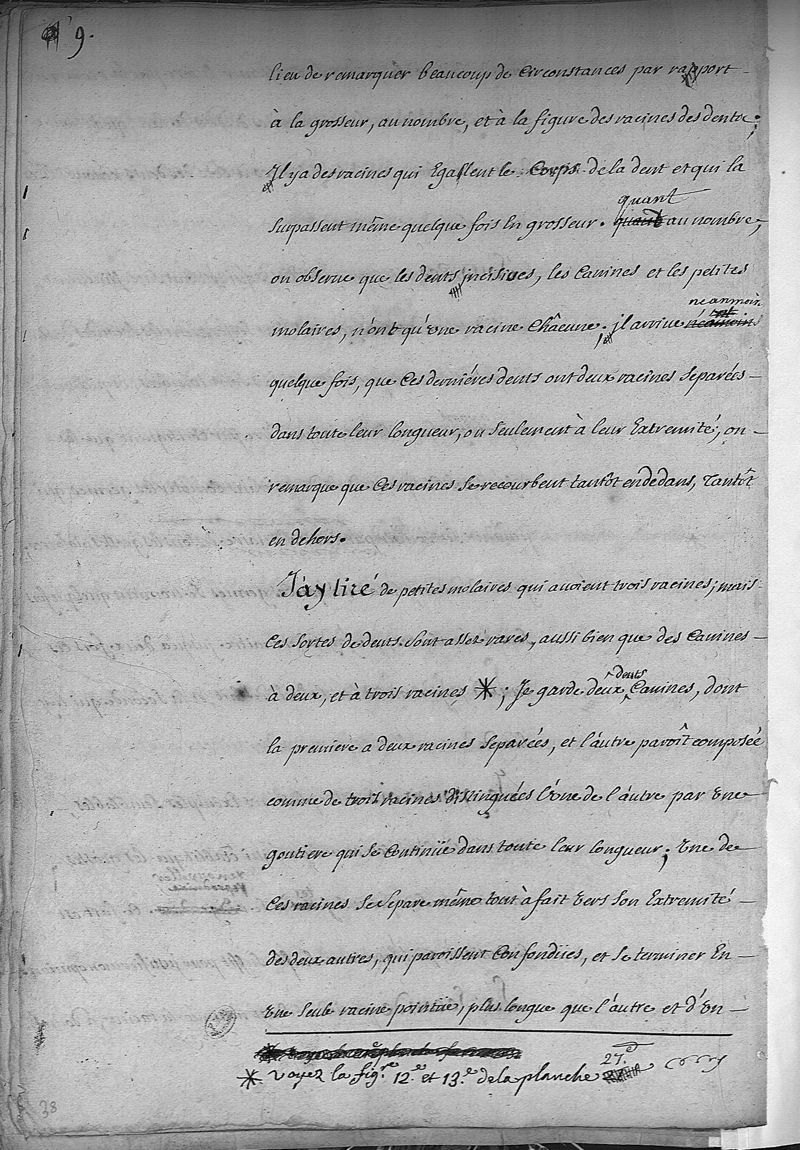 9.
lieu de remarquer beaucoup de circonstances par rapport
à la grosseur, au nombre, et à la figure des racines des dents;
Il y a des racines qui Egallent le Corps de la dent et qui la
quant
surpassent même quelque fois En grosseur. quand au nombre,
on observe que les dents incisives, les Canines et les petites
neanmoin
molaires, n'ont qu'une racine Châcune; il arrive néamoins
quelque fois, que Ces derniéres dents ont deux racines separées
dans toute leur longueur, ou seulement à leur Extremité; on
remarque que Ces racines se recourbent tantôt en dedans, Tantôt
en dehors.
J'ay tiré de petites molaires qui avoient trois racines; mais
Ces sortes de dents sont assez rares, aussi bien que des Canines
dents
à deux, et à trois racines *; Je garde deux Canines, dont
la premiere a deux racines separées, et l'autre paroît composée
comme de trois racines distinguées l'une de l'autre par une
goutiere qui se Continüe dans toute leur longueur; une de
Ces racines se separe même tout à fait vers son Extremité
des deux autres, qui paroissent Confondües, et se terminer En
une seule racine pointüe, plus longue que l'autre et d'un
* voyez la fig.re 12.e et 13.e de la planche 27.e
38